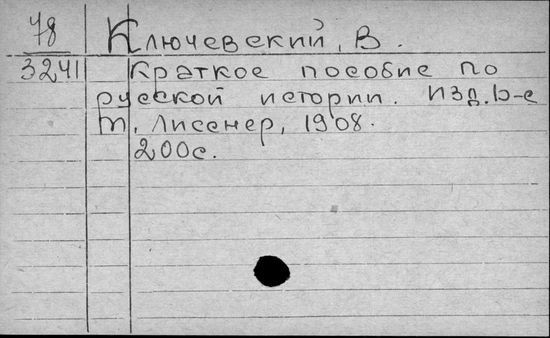 78 Ключевский, В.
3241 Краткое пособие по
русской истории. Изд. 5-е
М, Лиссенер, 1908.
200с.